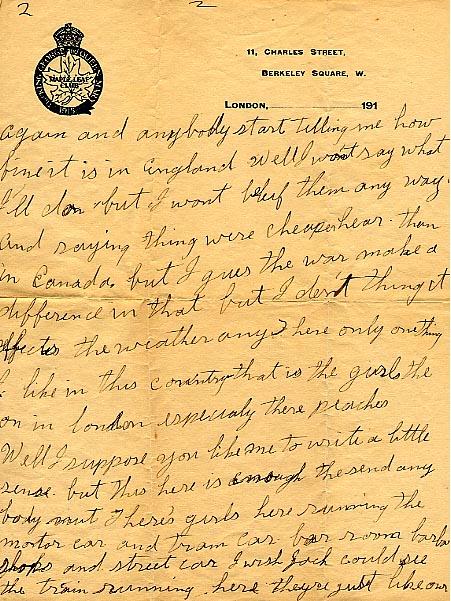 2
2
MAPLE LEAF
CLUB
1915
11, CHARLES STREET,
BERKELEY SQUARE, W.
LONDON, 191
again and anybody start telling me how
fine it is in England Well I won't say what
I'll do but I wont beleif them any way.
And saying thing were cheaper hear. than
in Canada. but I gues the war make a
difference in that but I don't thing it
effects the weather any There only one thing
I like in this country that is the girls the
on in london especialy there peaches
Well I suppose you like me to write a little
sense. but this here is enough the send any
body nut There's girls here running the
motor car and tram car bar room barbar
shops and street car I wish Jack could see
the train running here they're just like our